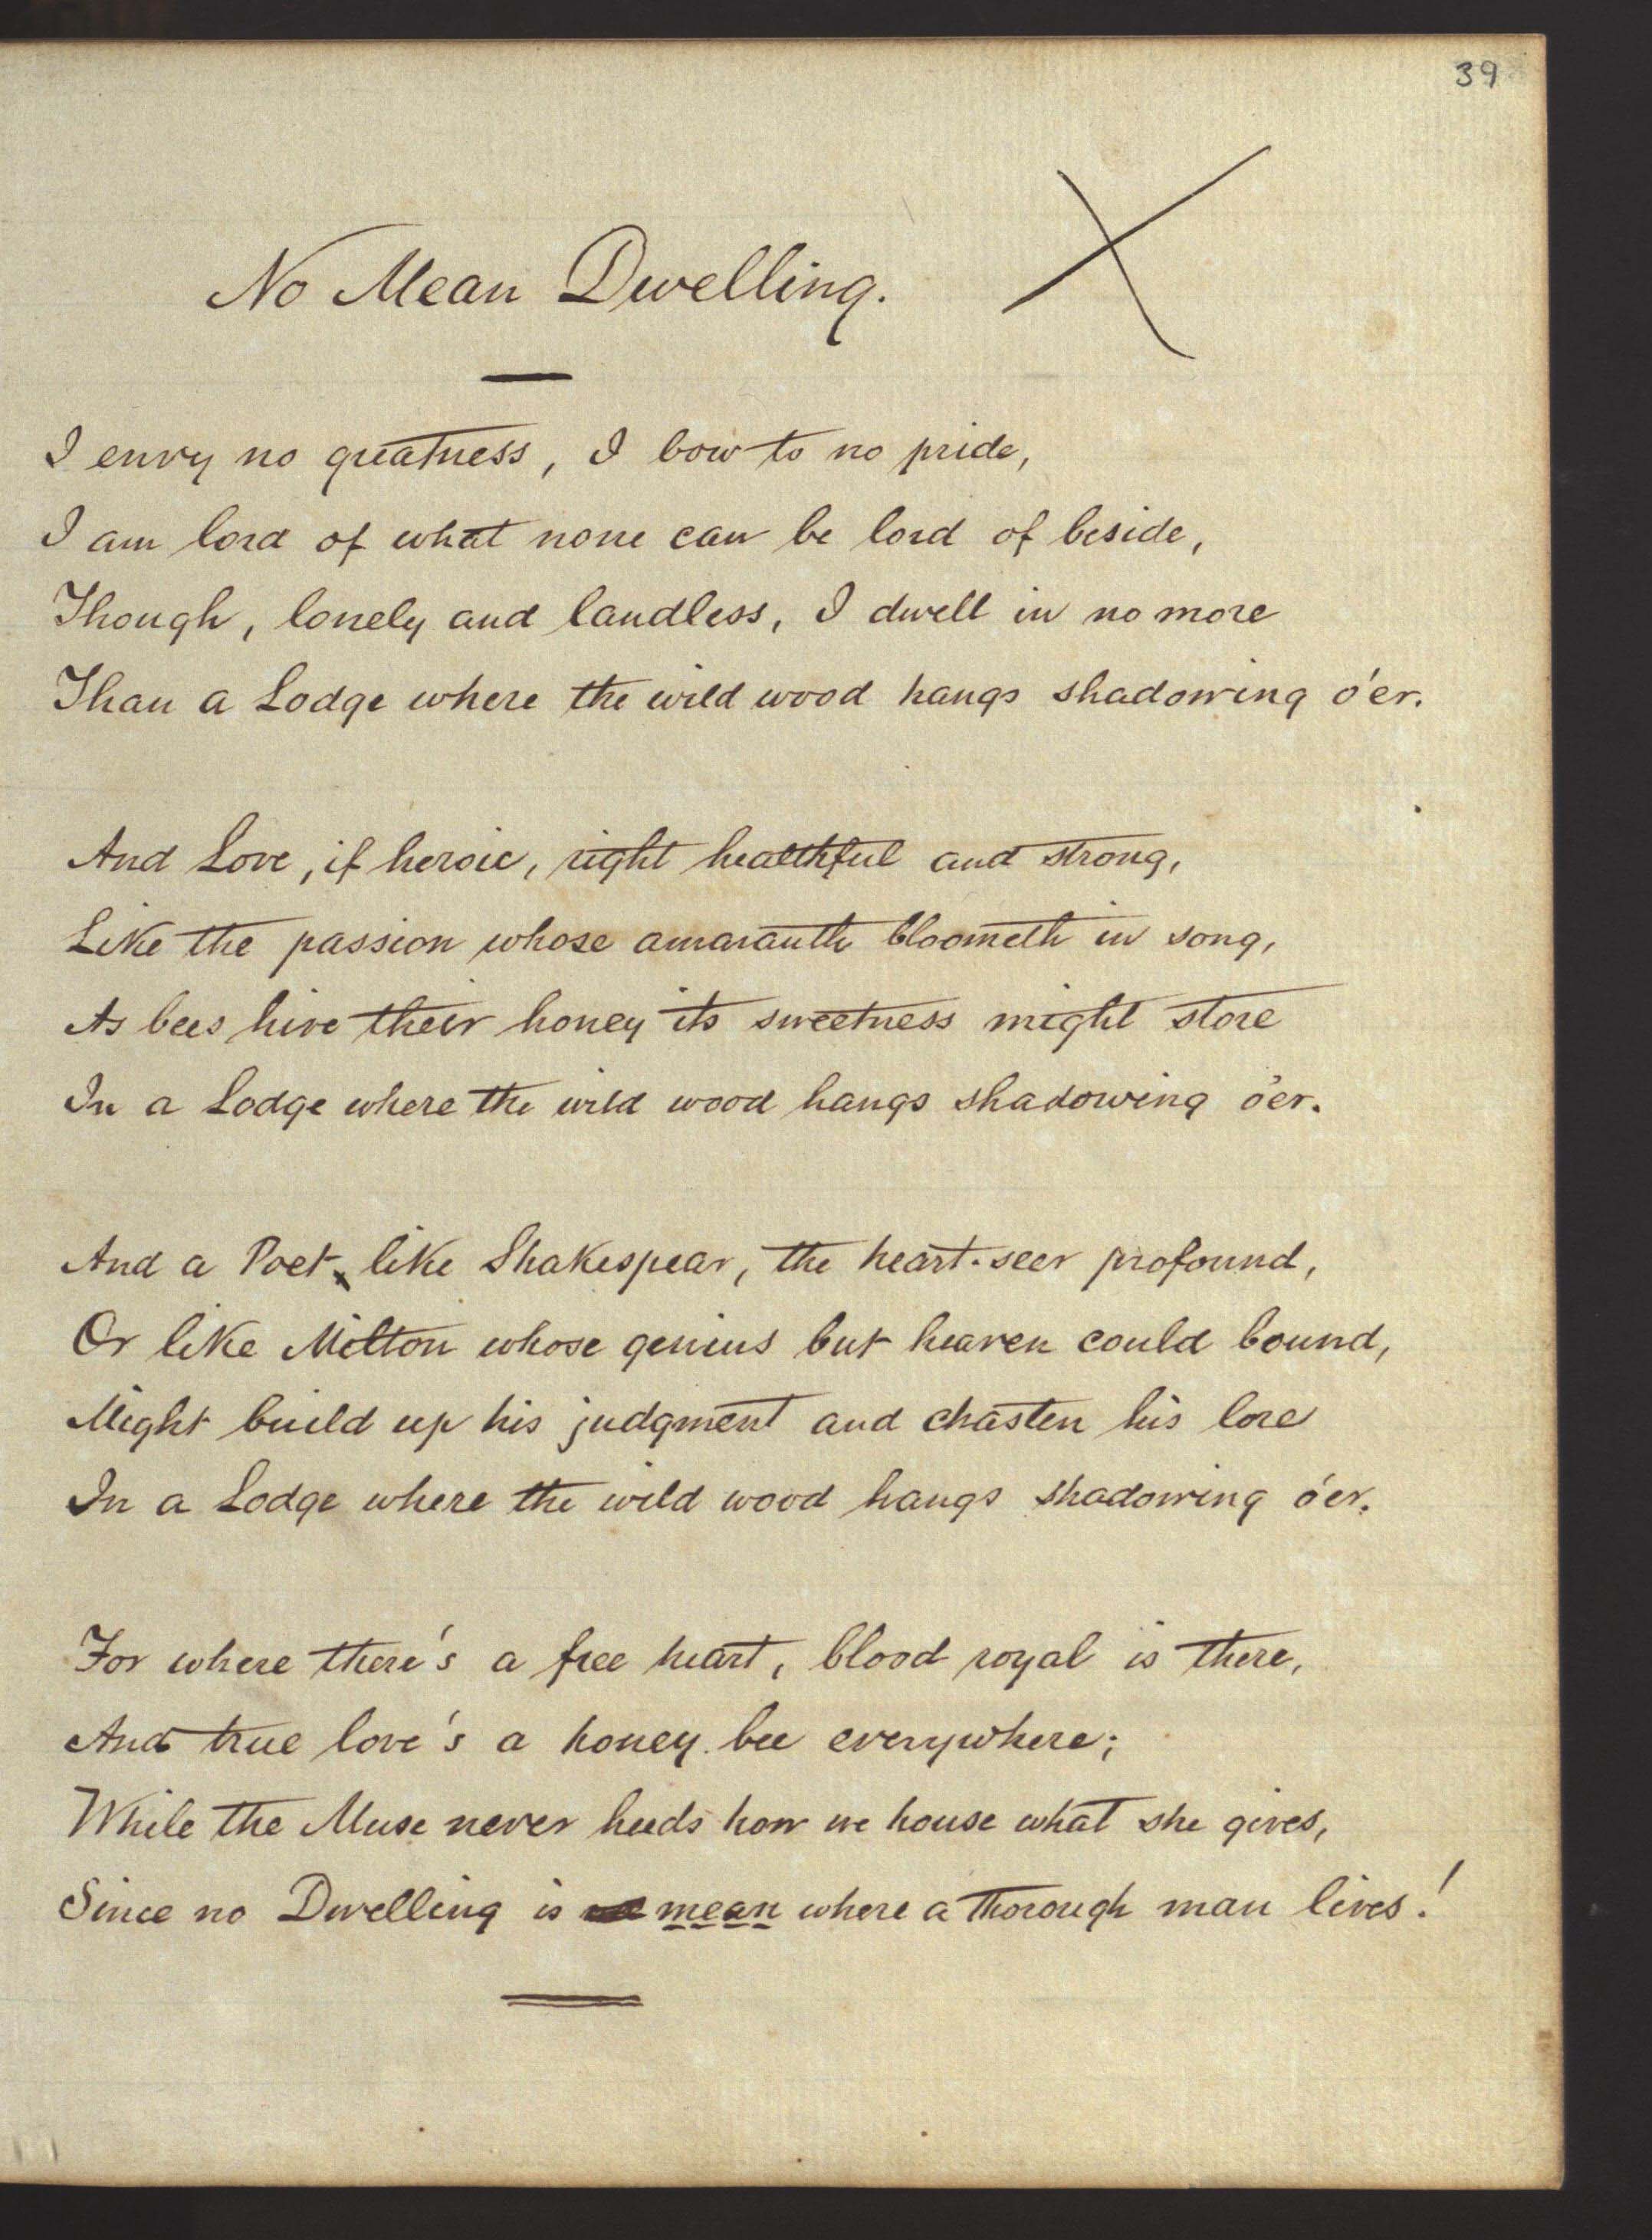 39
No Mean Dwelling.
I envy no greatness, I bow to no pride,
I am lord of what none can be lord of beside,
Though, lonely and landless, I dwell in no more
Than a Lodge where the wild wood hangs shadowing o'er.
And Love, if heroic, right healthful and strong,
Like the passion whose amaranth bloometh in song,
As bees hive their honey its sweetness might store
In a Lodge where the wild wood hangs shadowing o'er.
And a Poet, like Shakespear, the heart-seer profound,
Or like Milton whose genius but heaven could bound,
Might build up his judgment and chasten his lore
In a Lodge where the wild wood hangs shadowing o'er.
For where there's a free heart, blood royal is there,
And true love's a honey bee everywhere;
While the Muse never heeds how we house what she gives,
Since no Dwelling is mean where a thorough man lives!